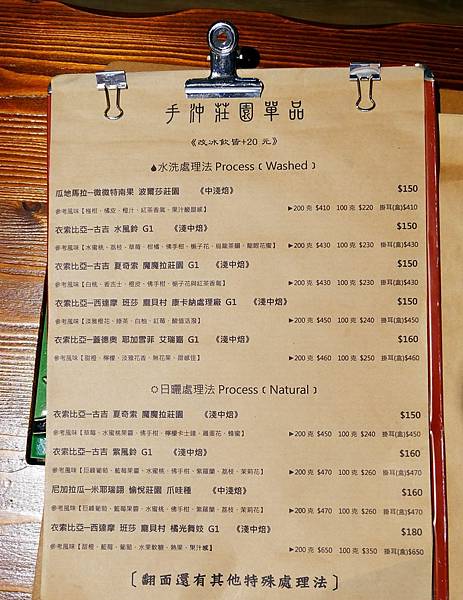 手沖莊園單品
《改冰飲皆+20 元》
水洗處理法 Process﹝Washed﹞
瓜地馬拉—微微特南果 波爾莎莊園 《中淺焙》 $150
參考風味【柑、橘皮、橙汁、紅茶香氣、果汁酸甜感】 ▶200 克 $410 100 克 $220 掛耳(盒)$410
衣索比亞—古吉 水風鈴 G1 《淺中焙》 $150
參考風味【水蜜桃、荔枝、草莓、柑橘、佛手柑、梔子花、烏龍茶韻、蜜】 ▶200 克 $430 100 克 $230 掛耳(盒)$430
衣索比亞—古吉 夏奇索 魔魔拉莊園 G1 《淺中焙》 $150
參考風味【白桃、香吉士、橙皮、佛手柑、梔子花與紅茶香氣】 ▶200 克 $430 100 克 $230 掛耳(盒)$430
衣索比亞—西達摩 班莎 磨貝村 康卡納處理廠 G1 《淺中焙》 $150
參考風味【淡雅橙花、綠茶、白柚、紅莓、酸值活潑】 ▶200 克 $450 100 克 $240 掛耳(盒)$450
衣索比亞—蓋德奧 耶加雪菲 艾瑞嘉 G1 《淺中焙》 $160
參考風味【甜橙、檸檬、淡雅花香、無花果、甜感佳】 ▶200 克 $460 100 克 $250 掛耳(盒)$460
日曬處理法 Process﹝Natural﹞
衣索比亞—古吉 夏奇索 魔魔拉莊園 《淺中焙》 $150
參考風味【草莓、水蜜桃果醬、佛手柑、檸檬卡士達、雞蛋花、蜂蜜】 ▶200 克 $450 100 克 $240 掛耳(盒)$450
衣索比亞—古吉 紫風鈴 G1 《淺中焙》 $160
參考風味【巨峰葡萄、藍莓果醬、水蜜桃、佛手柑、紫羅蘭、荔枝、茉莉花】 ▶200 克 $470 100 克 $260 掛耳(盒)$470
尼加拉瓜—米耶瑞詡 愉悅莊園 爪哇種 《中淺焙》 $160
參考風味【巨峰葡萄、藍莓果醬、水蜜桃、佛手柑、紫羅蘭、荔枝、茉莉花】 ▶200 克 $470 100 克 $260 掛耳(盒)$470
衣索比亞—西達摩 班莎 磨貝村 橘光舞妓 G1 《淺中焙》 $180
參考風味【甜橙、藍莓、葡萄、水果軟糖、熱果、果汁感】 ▶200 克 $650 100 克 $350 掛耳(盒)$650
〔翻面還有其他特殊處理法〕